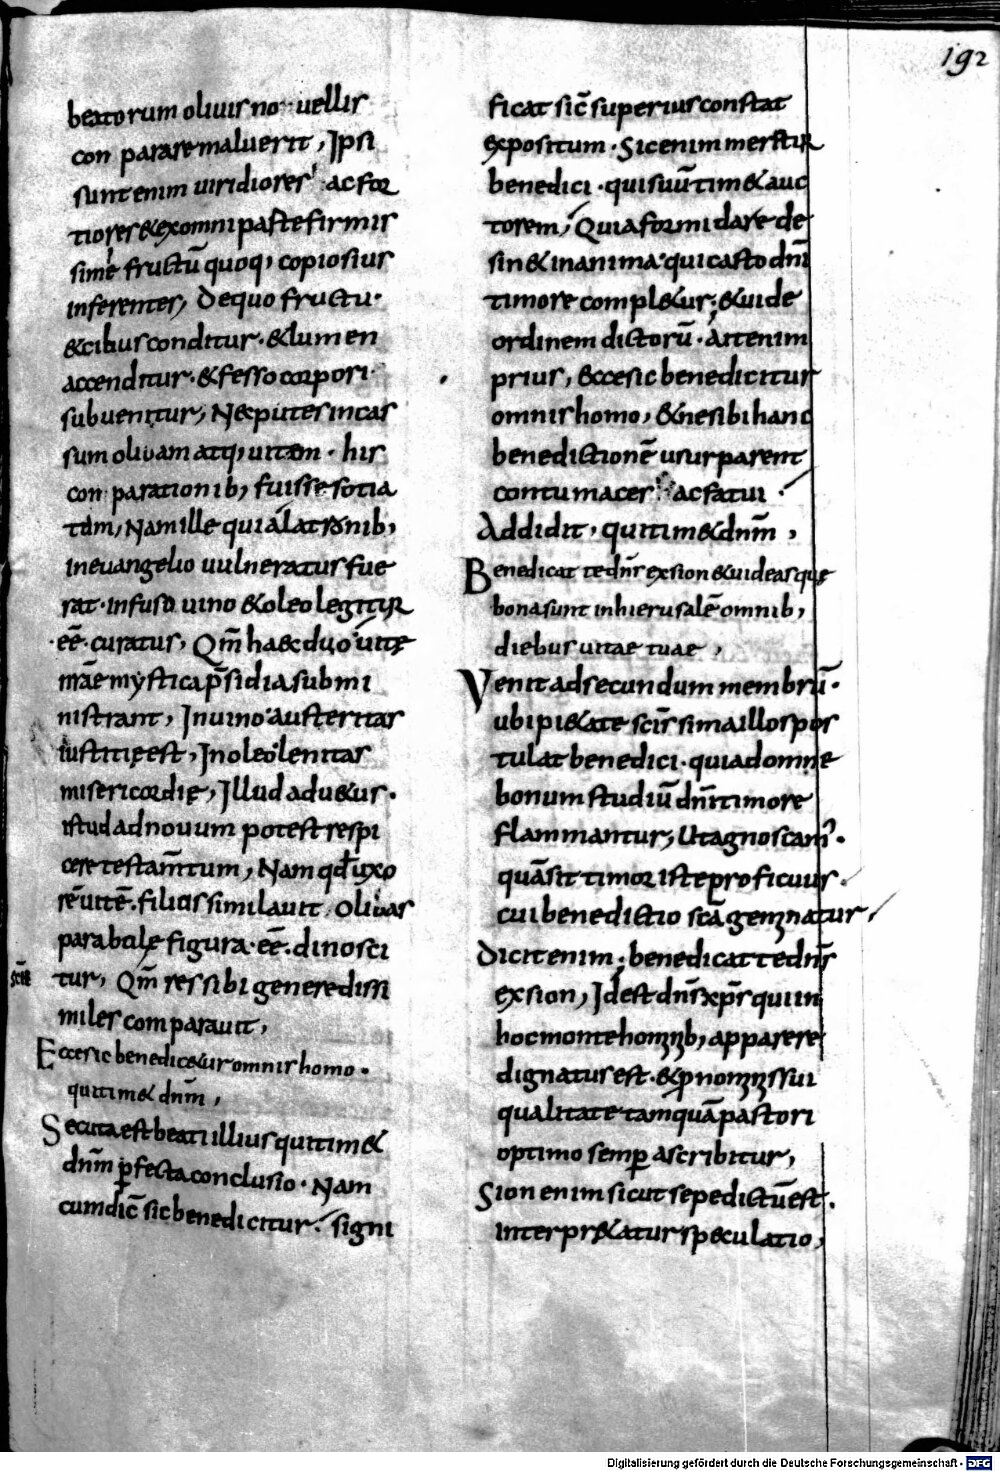 192
beatorum oliuis no uellis
conpararemaluerit, Ipsi
suntenim uiridiores ac for
tiores & exomni paste firmis
sime fructū quoq; copiosius
inferentes, De quo fructu.
& cibus conditur. & lumen
accenditur. & fesso corpori
subuenitur, Nec putes incas
sum oliuam atq; uitam. his
conparationib; fuisse sotia
tam, Nam ille qui a latronib;
in euangelio uulneratus fue
rat. infuso uino & oleo legitur
eē. curatus, Qm̄ haec duo uitę
mr̄ae mystica p̄sidia submi
nistrant, In uino austeritas
iustitię est, In oleo lenitas
misericordię, Illud ad uetus.
istud ad nouum potest respi
cere testam̄tum, Nam qd̄ uxo
rē uitē. filiis similauit oliuas
parabolę figura. eē. dinosci
tur, Qm̄ res sibi genere dissi
miles comparauit,
Ecce sic benedicetur omnis homo.
qui timet dnm̄,
Secuta est beati illius qui timet
dnm̄ perfecta conclusio. Nam
cum dic̄ sic benedicitur. signi
ficat sic̄ superius constat
expositum. Sic enim merētur
benedici. qui suū timet auc
torem, Quia formidare de
sinet inanima. qui casto dn̄i
timore completur, & uide
ordinem dictorū. Ait enim
prius, ecce sic benedicitur
omnis homo, & ne sibi hanc
benedictionē usurparent
contumaces ac fatui.
Addidit, qui timet dnm̄,
Benedicat te dn̄s ex sion & uideas que
bona sunt in hierusalē omnib;
diebus uitae tuae,
Venit ad secundum membrū.
ubi pietate scīssima illos pos
tulat benedici. quia domne
bonum studiū dn̄i timore
flammantur, Ut agnoscam̄.
quā sit timor iste proficuus.
cui benedictio scā geminatur,
Dicit enim; benedicat te dn̄s
ex sion, Id est dn̄s xp̄s qui in
hoc monte hominib; apparere
dignatus est. & p nominis sui
qualitate tamquā pastori
optimo semper ascribitur,
Sion enim sicut sepe dictū est.
interpretatur speculatio,
Digitalisierung gefördert durch die Deutsche Forschungsgemeinschaft - DFG